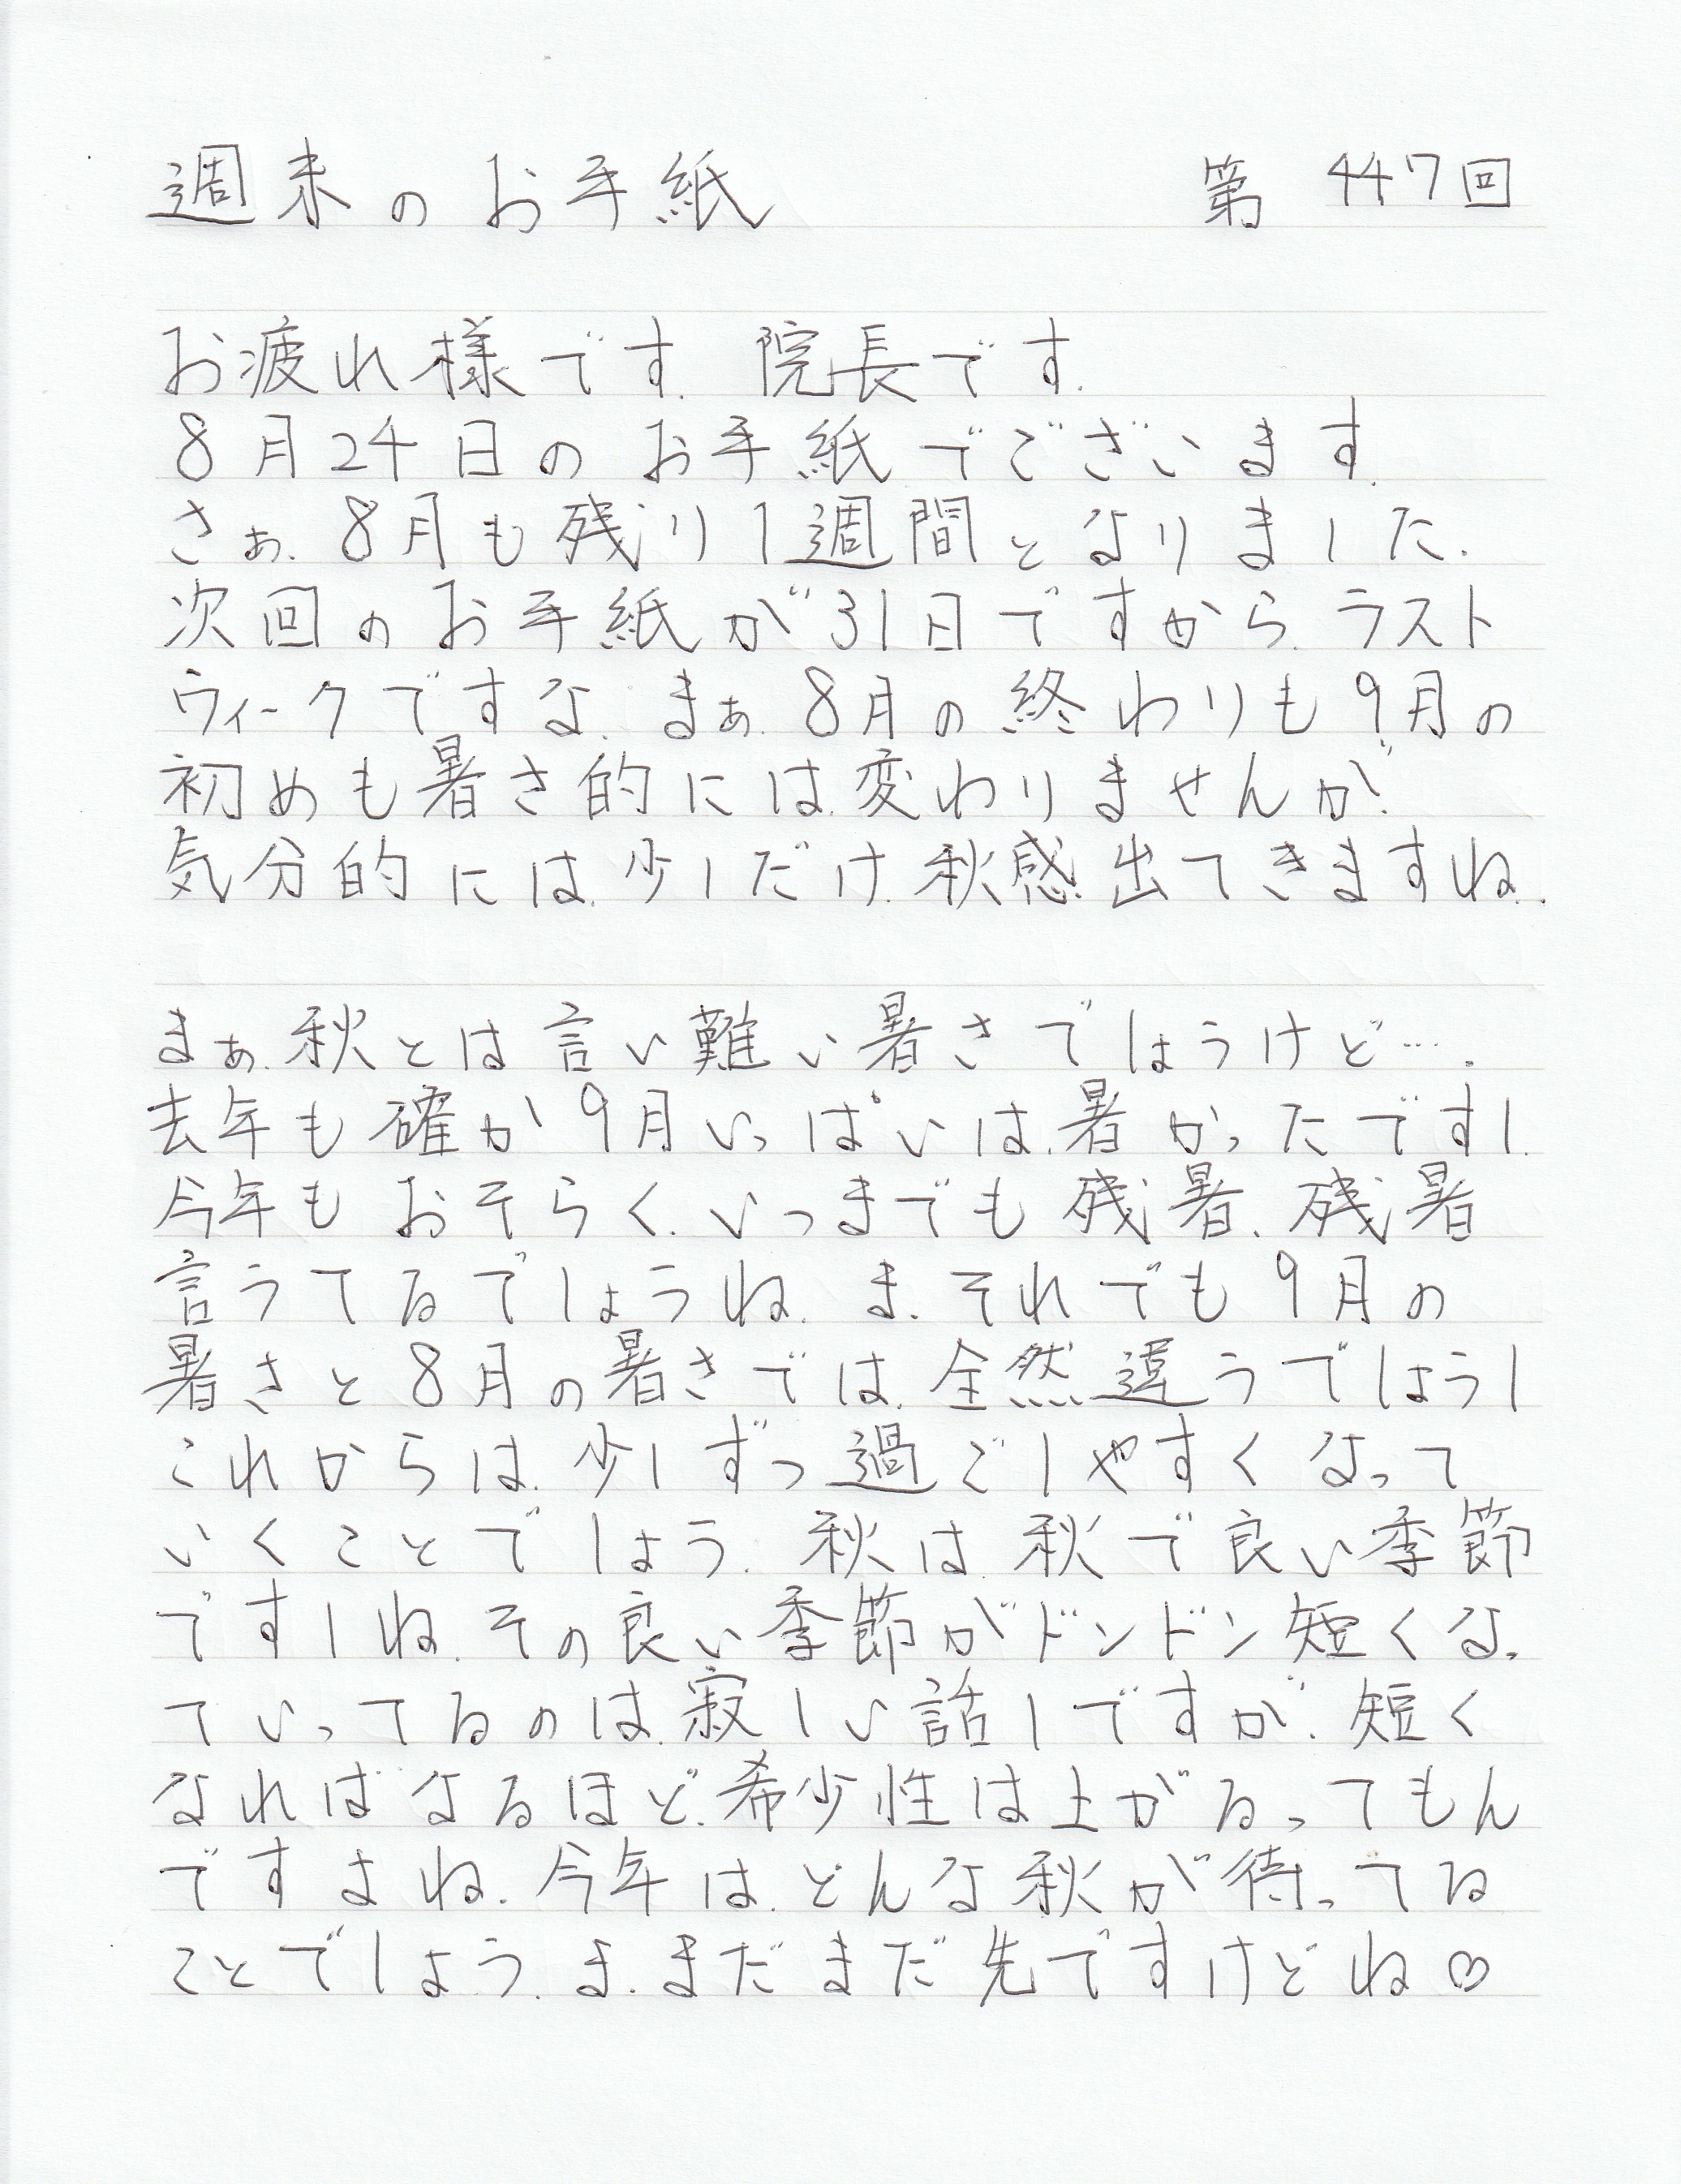 週末のお手紙 第447回
お疲れ様です。院長です。
8月24日のお手紙でございます。
さぁ、8月も残り1週間となりました。
次回のお手紙が31日ですから、ラスト
ウィークですな。まぁ、8月の終わりも9月の
初めも暑さ的には、変わりませんが、
気分的には、少しだけ、秋感出てきますね。
まぁ、秋とは言い難い暑さでしょうけど…。
去年も確か9月いっぱいは、暑かったですし、
今年もおそらく、いつまでも残暑、残暑
言うてるでしょうね。ま、それでも9月の
暑さと8月の暑さでは、全然違うでしょうし
これからは、少しずつ過ごしやすくなって
いくことでしょう。秋は、秋で良い季節
ですしね。その良い季節がドンドン短くなっ
ていってるのは、寂しい話しですが、短く
なればなるほど、希少性は上がるってもん
ですよね。今年は、どんな秋が待ってる
ことでしょう。ま、まだまだ先ですけどね♡